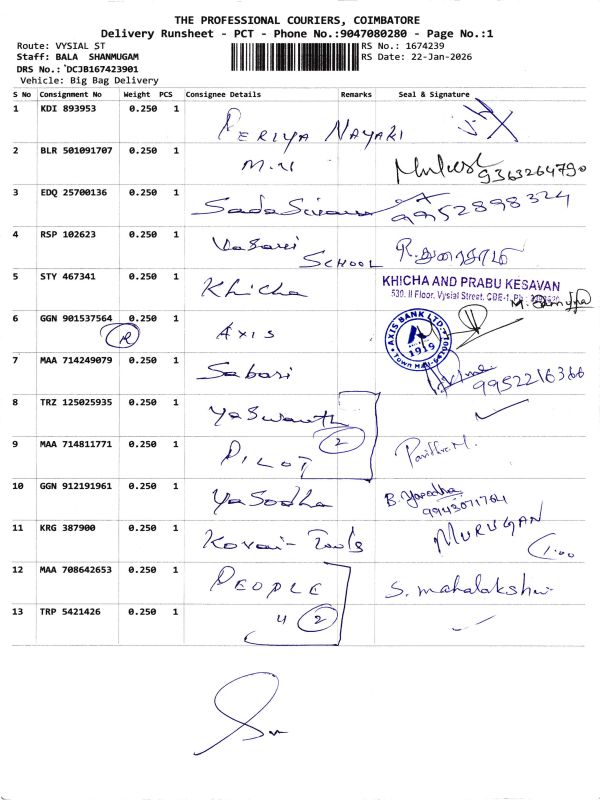 THE PROFESSIONAL COURIERS, COIMBATORE
Delivery Runsheet - PCT - Phone No.:9047080280 - Page No.:1
Route: VYSIAL ST
RS No.: 1674239
Staff: BALA SHANMUGAM
RS Date: 22-Jan-2026
DRS No.: DCJB167423901
Vehicle: Big Bag Delivery
S No Consignment No Weight PCS Consignee Details Remarks Seal & Signature
1 KDI 893953 0.250 1 PERIYA NAYAKI
2 BLR 501091707 0.250 1 M.N 9363264790
3 EDQ 25700136 0.250 1 9952898324
4 RSP 102623 0.250 1 SCHOOL
5 STY 467341 0.250 1 Khicha KHICHA AND PRABU KESAVAN
530, II Floor, Vysial Street, CBE-1.
6 GGN 901537564 0.250 1 AXIS AXIS BANK LTD. 1919
7 MAA 714249079 0.250 1 Sabari 9952216366
8 TRZ 125025935 0.250 1 Yaswanth
2
9 MAA 714811771 0.250 1 PILOT
10 GGN 912191961 0.250 1 Yasodha B. Yasodha
11 KRG 387900 0.250 1 Kovai-Tools MURUGAN
1.00
12 MAA 708642653 0.250 1 PEOPLE S. mahalakshmi
13 TRP 5421426 0.250 1 4 2